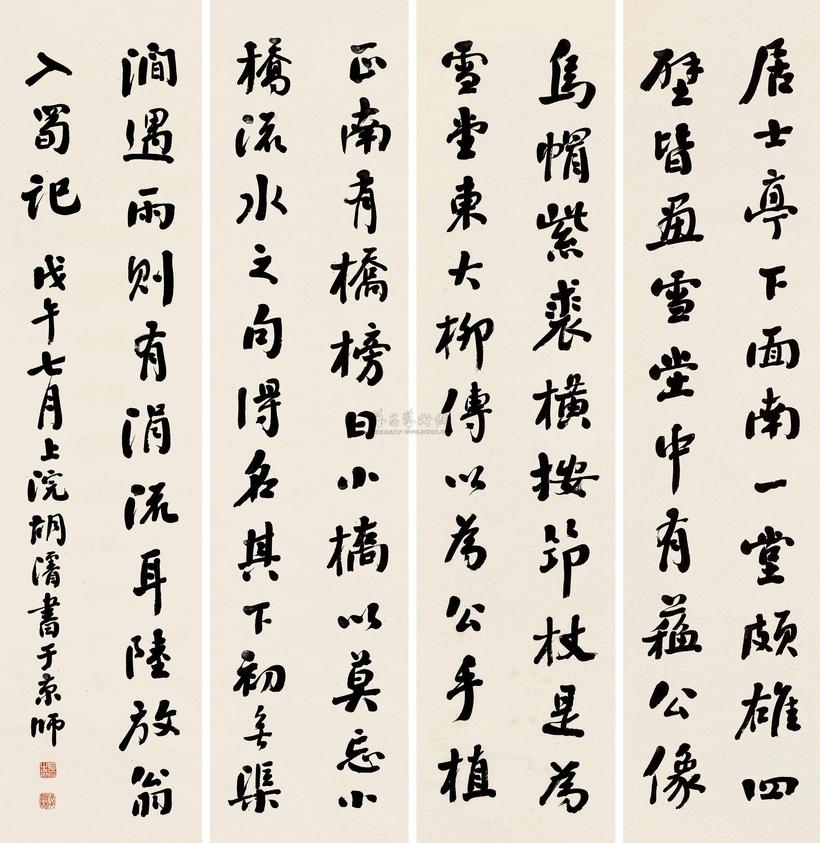 居士亭下面南一堂頗雄四
壁皆畫雪堂中有蘓公像
烏帽紫裘橫按筇杖是為
雪堂東大柳傳以為公手植
正南有橋榜曰小橋以莫忘小
橋流水之句得名其下初無渠
澗遇雨則有涓流耳陸放翁
入蜀記 戊午七月上浣胡濬書于京師